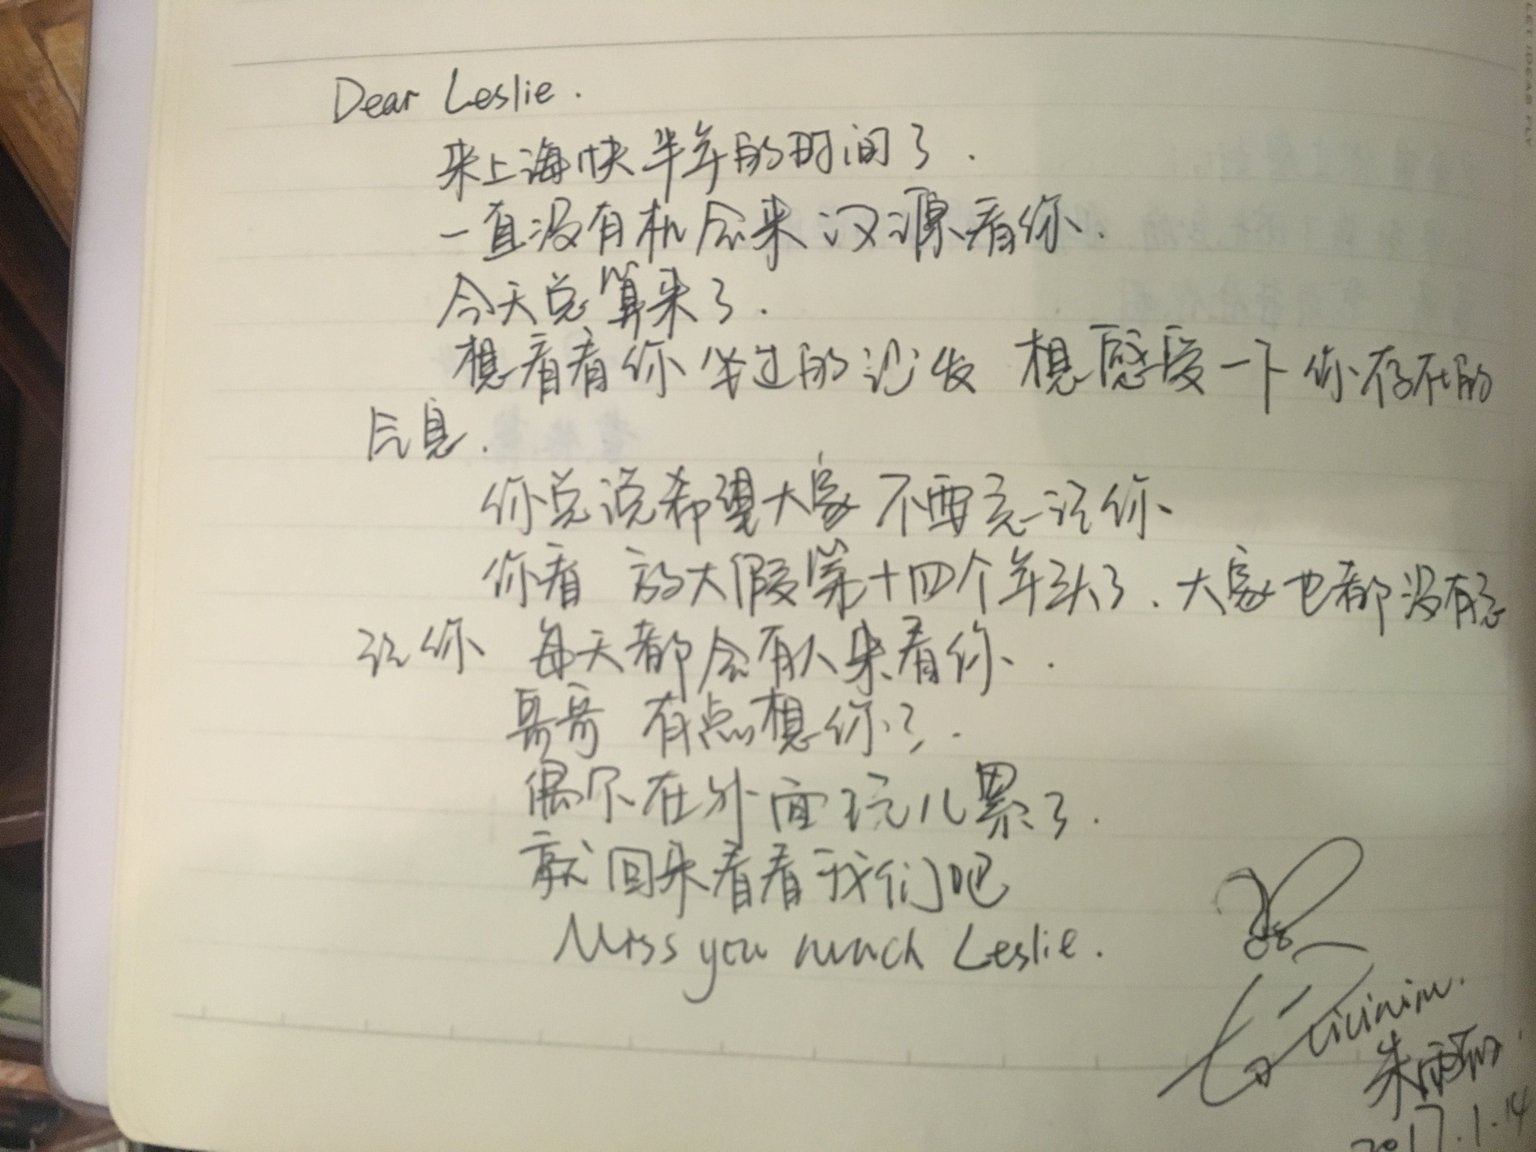 Dear Leslie.
来上海快半年的时间了.
一直没有机会来汉源看你.
今天总算来了.
想看看你坐过的沙发 想感受一下你存在的
气息.
你总说希望大家不要忘记你
你看 放大假第十四个年头了. 大家也都没有忘
记你 每天都会有人来看你.
哥哥 有点想你了.
偶尔在外面玩儿累了.
就回来看看我们吧
Miss you much Leslie.
2017.1.14